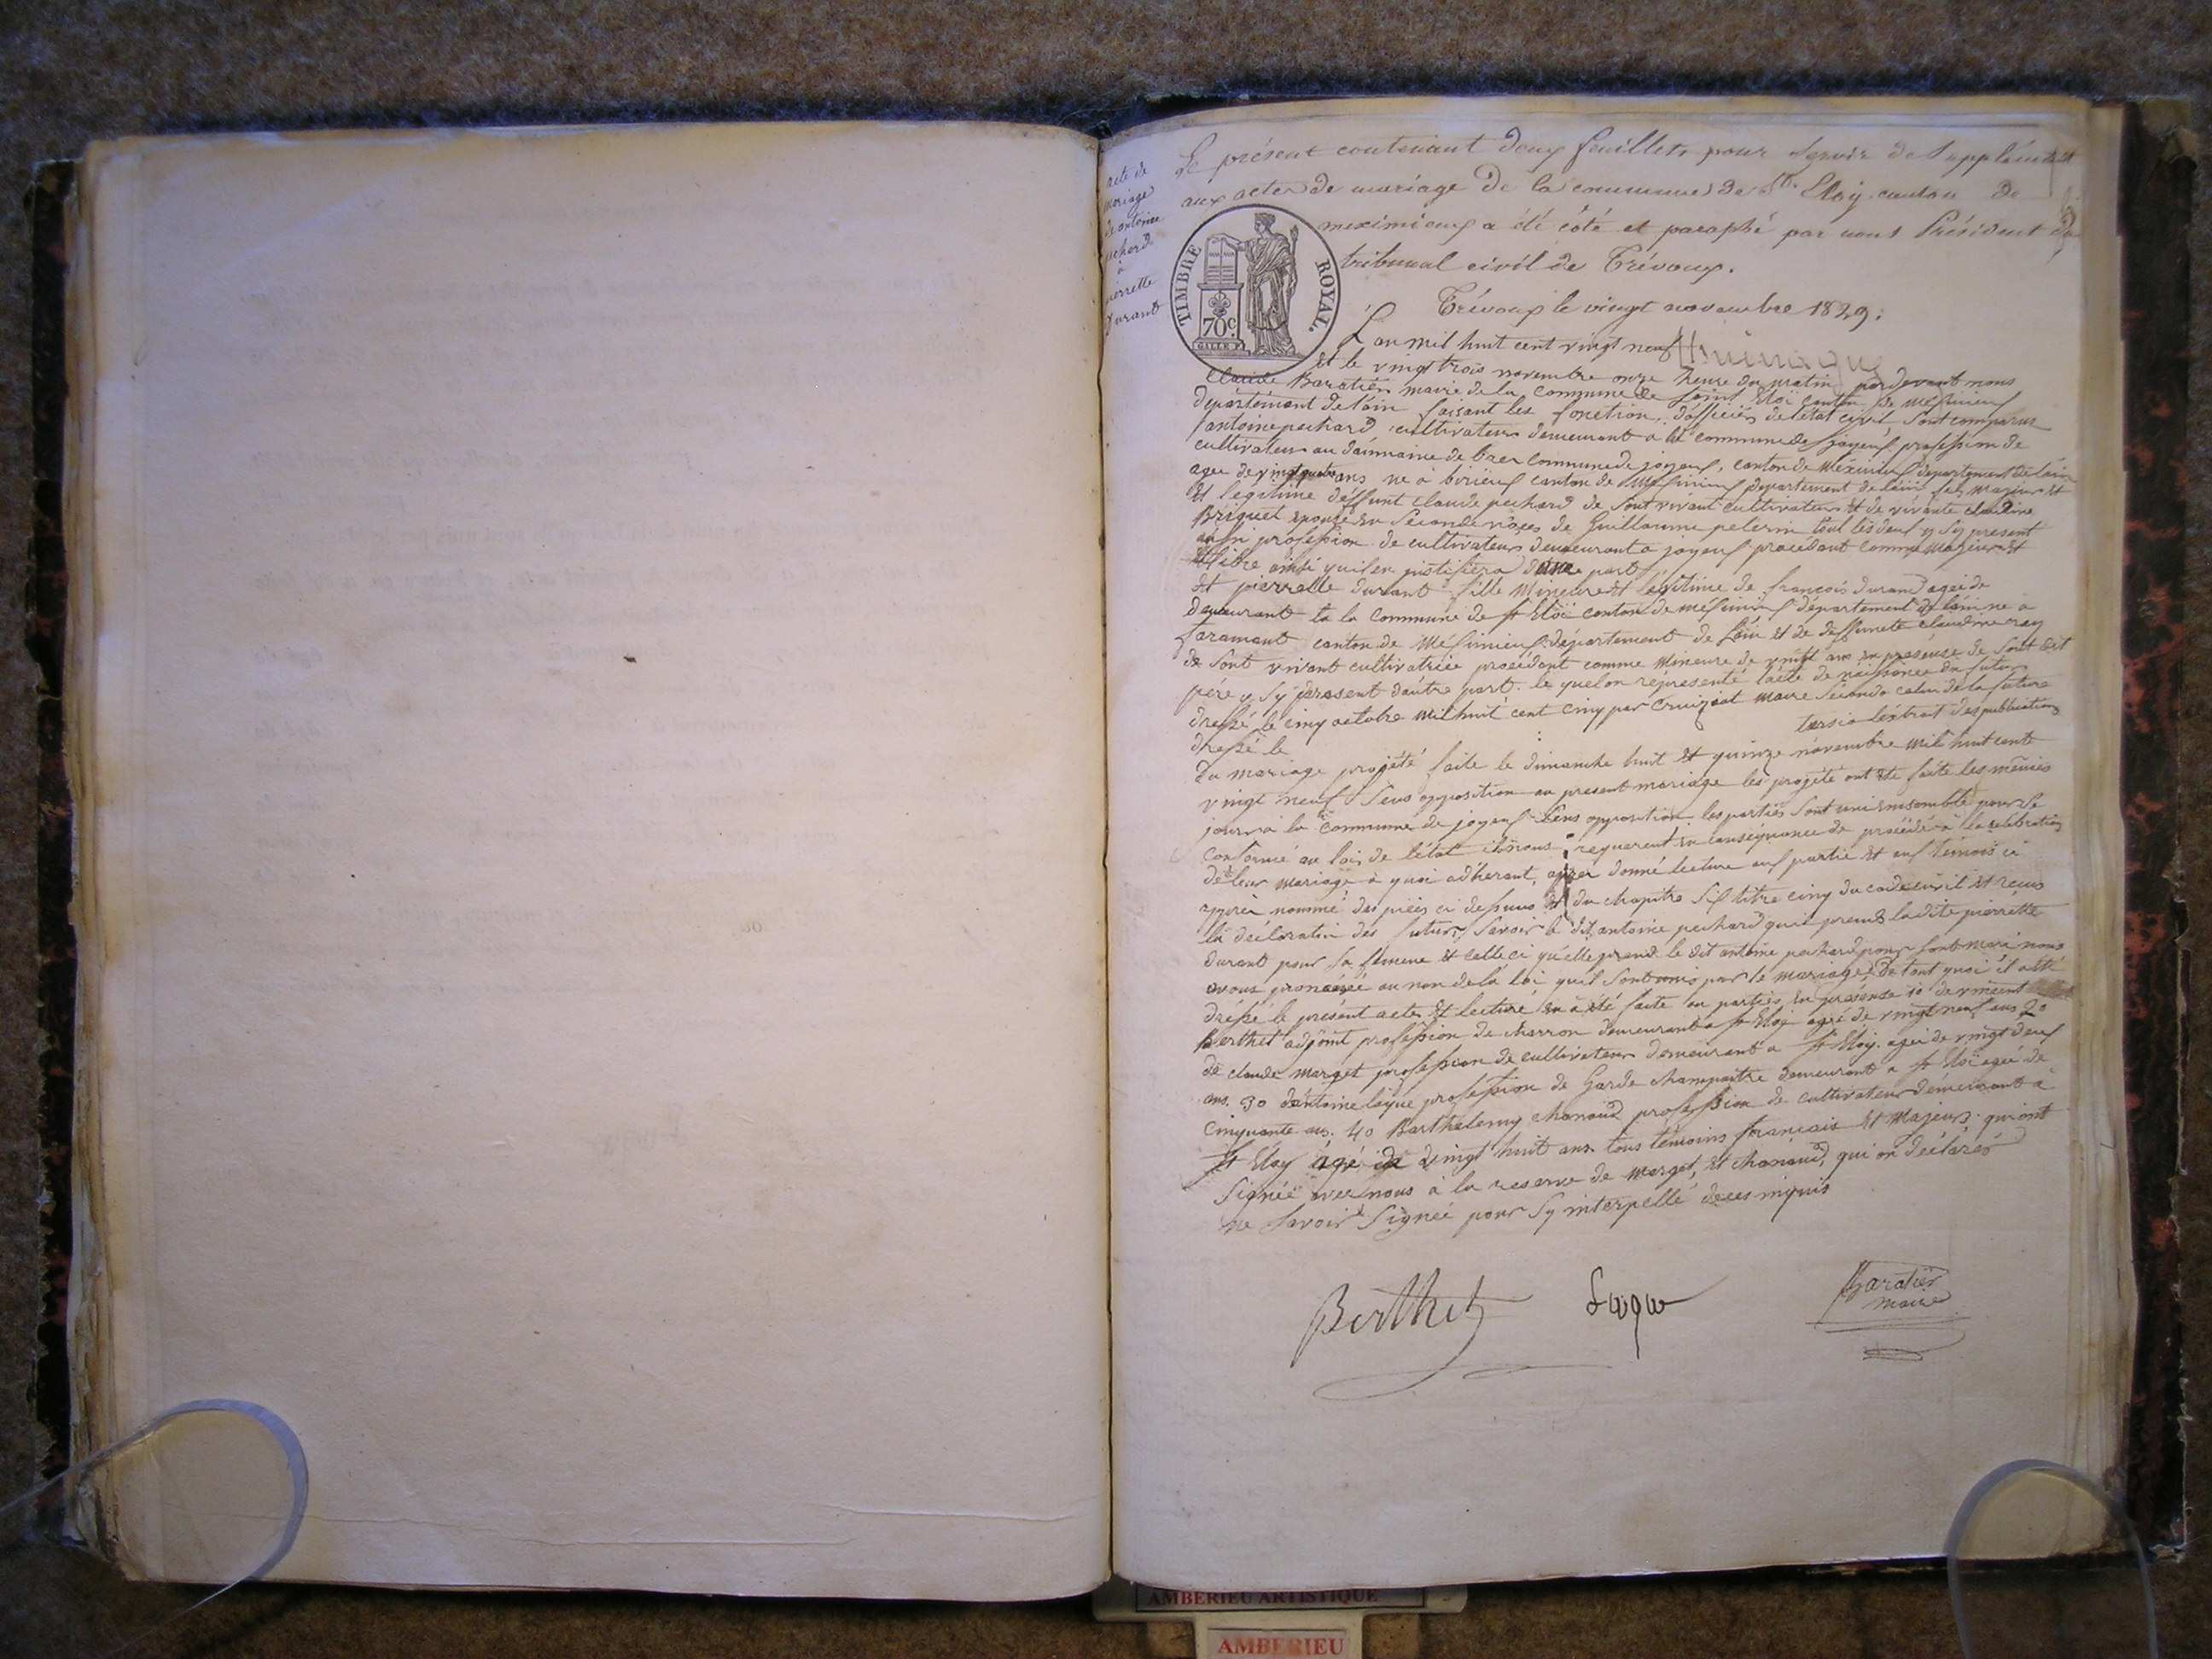 acte de
mariage
de antoine
pechard
à
pierrette
durant
Le présent contenant deux feuillets pour servir de supplément
aux actes de mariage de la commune de St. Eloy canton de
meximieux a été côté et paraphé par nous Président du
tribunal civil de Trévoux.
Trévoux le vingt novembre 1829.
TIMBRE ROYAL.
70c.
L'an mil huit cent vingt neuf
et le vingt trois novembre onze heure du matin pardevant nous
Claude Baratier maire de la commune de Saint Eloi canton de Meximieux
département de l'ain faisant les fonction d'officier de l'état civil sont comparus
antoine pechard cultivateur demeurant a la commune de joyeux profession de
cultivateur au dommaine de bres commune de joyeux, canton de Meximieux departement de lain
agee de vingt quatre ans né a birieux canton de Meximieux departement de lain fils majeur et
et légitime deffunt claude pechard de sont vivant cultivateur et de vivante claudine
Briquet epouse en seconde noces de Guillaume pelerin tout les deux y sy present
profession de cultivateur demeurant a joyeux procedant comme majeur et
libre ainsi quil en justifiera d'une part
et pierrette durant fille mineure et légitime de françois durand agée de
demeurant la la commune de st Eloi canton de méximieux département de lain né a
faramant canton de Méximieux département de lain et de deffunete claudine ray
de sont vivant cultivatrice procedant comme mineure de vingt ans en presense de sont dit
père y sy present d'autre part. le quelon representé l'acte de naissance du futur
dressé le cinq octobre mil huit cent cinq par maire secondo celui de la future
dressé le tersio lextrait des publications
du mariage projété faite le dimanche huit et quinze novembre mil huit cent
vingt neuf sens opposition au present mariage les projété ont été faite les mêmes
jour a la commune de joyeux sens opposition les parties sont uni ensemble pour se
conformé au lois de l'état requerent en conséquance de procédé à la celebration
de leur mariage à quoi adherant, apres donné lecture aux partie et aux témois ci
apprès nommé des pièces ci dessus et du chapitre six titre cinq du code civil et reçus
la déclaratin des futurs savoir le dit antoine pechard qui prends ladite pierrette
durant pour sa femme et celle ci qu'elle prend le dit antoine pechard pour sont mari nous
avous prononcé au non de la loi quil sont unis par le mariage. De tout quoi il a été
dressé le présent acte et lecture en a été faite au parties en présense 1o de vincent
Berthet adjoint profession de charron demeurant a st Eloy agée de vingt neuf ans 2o
de claude marget profession de cultivateur demeurant a st Eloy. agée de vingt deux
ans. 3o d'antoine layue profession de Garde champaitre demeurant a st Eloi agée de
cinquante ans. 4o Barthelemy chanaud profession de cultivateur demeurant a
st Eloy agé de vingt huit ans tous témoins francais et majeurs qui ont
signée avec nous à la reserve de marget, et chanaud, qui on déclarés
ne savoir signeé pour sy interpellé deces inquis
Berthet Baratier
maire
AMBERIEU ARTISTIQUE
AMBERIEU